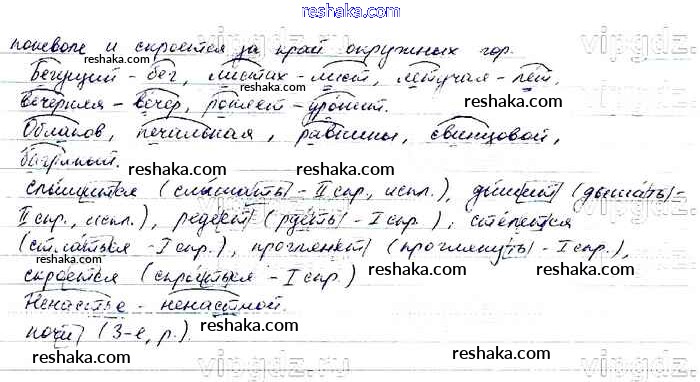 reshaka.com
поневоле и скроется за край окружных гор.
Бегущий – бег, листах – лист, летучая – лёт,
reshaka.com
вечерняя – вечер, роняет – уронит.
reshaka.com
Облаков, печальная, равнины, свинцовой,
reshaka.com
багряный.
reshaka.com
слышится (слышать – II спр., искл.), дышит (дышать –
II спр., искл.), редеет (редеть – I спр.), стелется
reshaka.com
(стлаться – I спр.), проглянет (проглянуть – I спр.),
reshaka.com
скроется (скрыться – I спр.)
reshaka.com
Ненастье – ненастной.
reshaka.com
ночи (3-е, р.).
reshaka.com
reshaka.com
vipgdz.ru